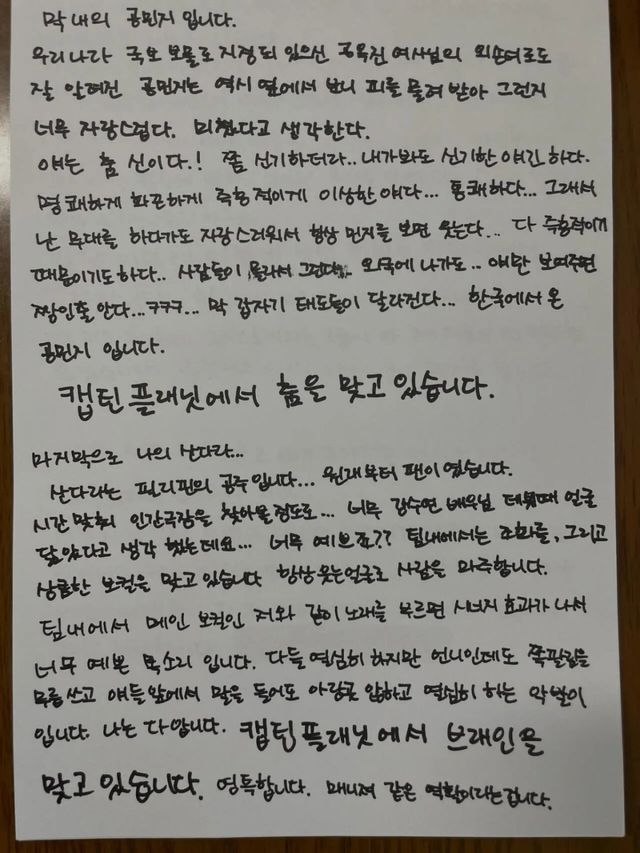 막내의 공민지 입니다.
우리나라 국보 보물로 지정되 있으신 공옥진 여사님의 외손녀로도
잘 알려진 공민지는 역시 옆에서 보니 피를 물려 받아 그런지
너무 자랑스럽다. 미쳤다고 생각한다.
얘는 춤 신이다.! 쫌 신기하더라.. 내가봐도 신기한 얘긴 하다.
명쾌하게 화끈하게 즉흥적이게 이상한 얘다... 통쾌하다... 그래서
난 무대를 하다가도 자랑스러워서 항상 민지를 보면 웃는다... 다 즉흥적이기
때문이기도하다.. 사람들이 몰라서 그런다.. 외국에 나가도.. 얘만 보여주면
짱인줄 안다...ㅋㅋㅋ... 막 갑자기 태도들이 달라진다... 한국에서 온
공민지 입니다.
캡틴 플래닛에서 춤을 맞고 있습니다.
마지막으로 나의 산다라...
산다라는 필리핀의 공주입니다... 원래부터 팬이였습니다.
시간 맞춰 인간극장을 찾아볼정도로... 너무 강수연 배우님 데뷔때 얼굴
닮았다고 생각 했는데요... 너무 예쁘죠?? 팀내에서는 조화를, 그리고
상큼한 보컬을 맞고 있습니다 항상웃는얼굴로 사람을 마주합니다.
팀내에서 메인 보컬인 저와 같이 노래를 부르면 시너지 효과가 나서
너무 예쁜 목소리 입니다. 다들 열심히 하지만 언니인데도 쪽팔림을
무릅쓰고 얘들앞에서 말을 들어도 아랑곳 않하고 열심히 하는 악발이
입니다. 나는 다압니다. 캡틴플래닛에서 브레인을
맞고 있습니다. 영특합니다. 매니져 같은 역할이라는겁니다.